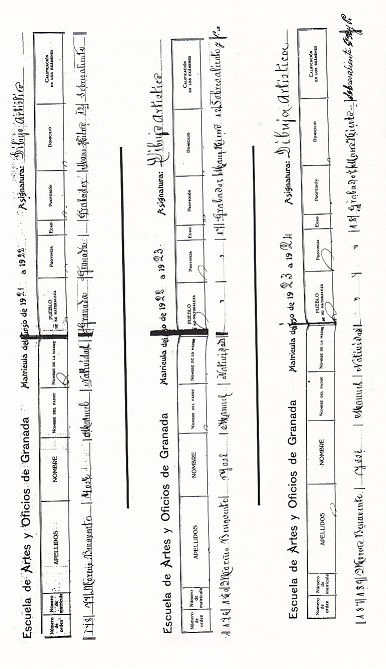 Escuela de Artes y Oficios de Granada Matrícula curso de 1921 a 1922 Asignatura: Dibujo Artístico
Número de orden Número de matrícula APELLIDOS NOMBRE NOMBRE DEL PADRE NOMBRE DE LA MADRE PUEBLO DE SU NATURALEZA PROVINCIA EDAD PROFESIÓN DOMICILIO CALIFICACIÓN EN LOS EXÁMENES
Benavente José Manuel Natividad Granada Granada Grabador Sobresaliente
Escuela de Artes y Oficios de Granada Matrícula curso de 1922 a 1923 Asignatura: Dibujo Artístico
Número de orden Número de matrícula APELLIDOS NOMBRE NOMBRE DEL PADRE NOMBRE DE LA MADRE PUEBLO DE SU NATURALEZA PROVINCIA EDAD PROFESIÓN DOMICILIO CALIFICACIÓN EN LOS EXÁMENES
Benavente José Manuel Natividad " " 17 Grabador Sobresaliente
Escuela de Artes y Oficios de Granada Matrícula curso de 1923 a 1924 Asignatura: Dibujo Artístico
Número de orden Número de matrícula APELLIDOS NOMBRE NOMBRE DEL PADRE NOMBRE DE LA MADRE PUEBLO DE SU NATURALEZA PROVINCIA EDAD PROFESIÓN DOMICILIO CALIFICACIÓN EN LOS EXÁMENES
187 187 Benavente José Manuel Natividad " " 18 Grabador Sobresaliente